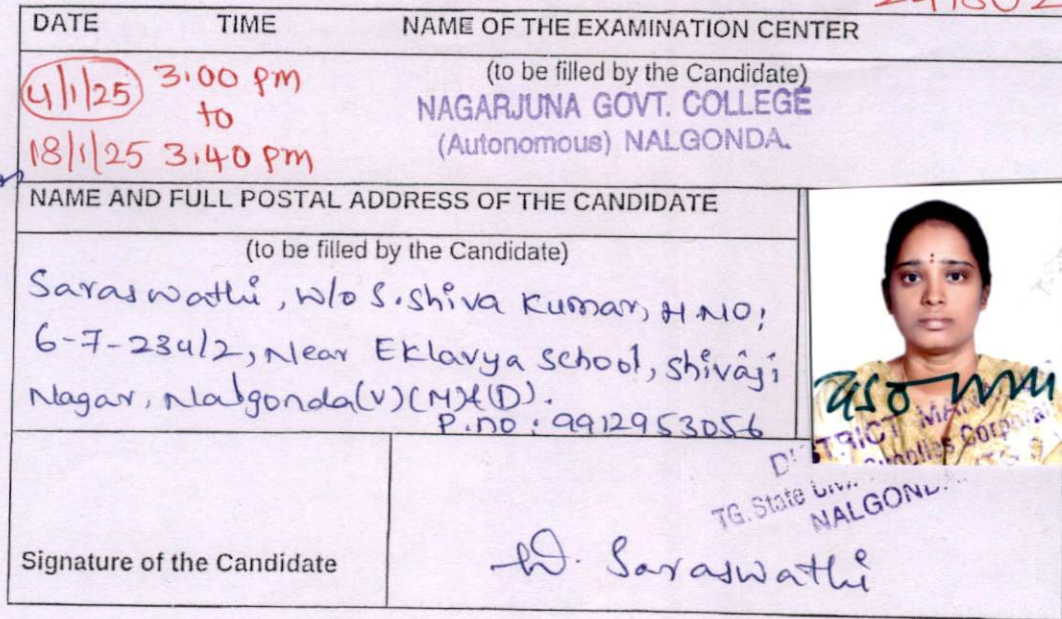 DATE TIME NAME OF THE EXAMINATION CENTER
(to be filled by the Candidate)
4/1/25 3:00 pm
to
18/1/25 3:40 pm
NAGARJUNA GOVT. COLLEGE
(Autonomous) NALGONDA.
NAME AND FULL POSTAL ADDRESS OF THE CANDIDATE
(to be filled by the Candidate)
Saraswathi, W/o S.Shiva Kumar, H.NO:
6-7-234/2, Near Eklavya School, Shivaji
Nagar, Nalgonda(V)(M)(D).
P.no: 9912953056
TG. State
NALGOND
Signature of the Candidate
Saraswathi